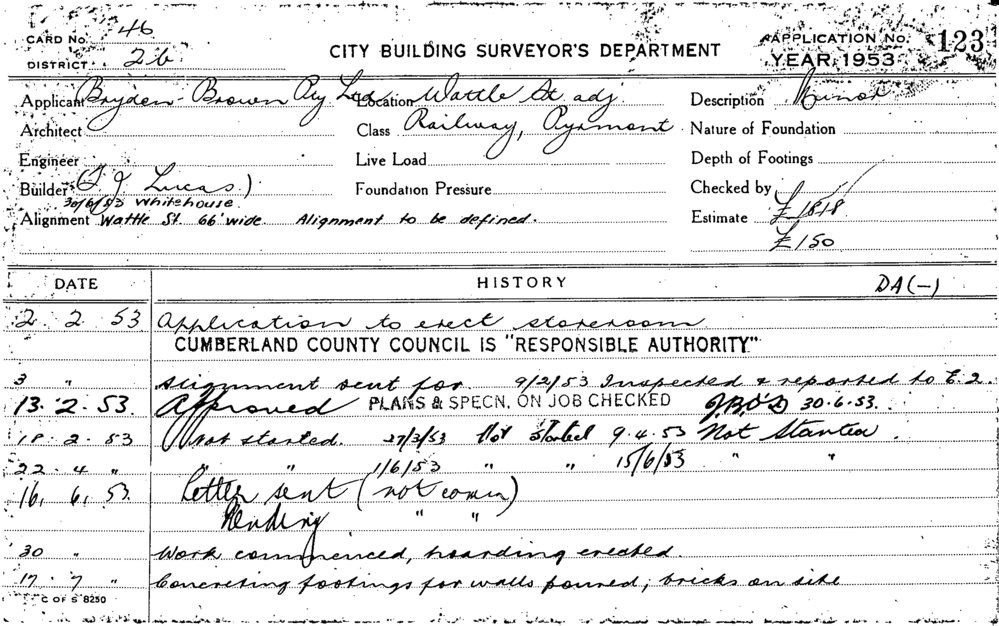 CARD No. 46
CITY BUILDING SURVEYOR'S DEPARTMENT
APPLICATION No. 123
DISTRICT 2b.
YEAR, 1953
Applicant Bryden-Brown Pty Ltd Location Wattle St adj Description Minor
Architect Class Railway, Pyrmont Nature of Foundation
Engineer Live Load Depth of Footings
Builder (T J Lucas) Foundation Pressure Checked by
30/6/53 Whitehouse.
Alignment Wattle St. 66' wide. Alignment to be defined. Estimate £1818
£150
DATE HISTORY DA (-)
2. 2. 53 Application to erect storeroom
CUMBERLAND COUNTY COUNCIL IS "RESPONSIBLE AUTHORITY"
3 " Alignment sent for. 9/2/53 Inspected & reported to E.2.
13. 2. 53. Approved PLANS & SPECN. ON JOB CHECKED 30.6.53.
18. 2. 53 Not started. 27/3/53 Not started 9.4.53 Not Started.
22. 4 " " " 1/6/53 " " 15/6/53 " "
16. 6. 53. Letter sent (not comm)
Pending " "
30 " Work commenced, hoarding erected.
17. 7 " Concreting footings for walls poured, bricks on site
C OF S 8250